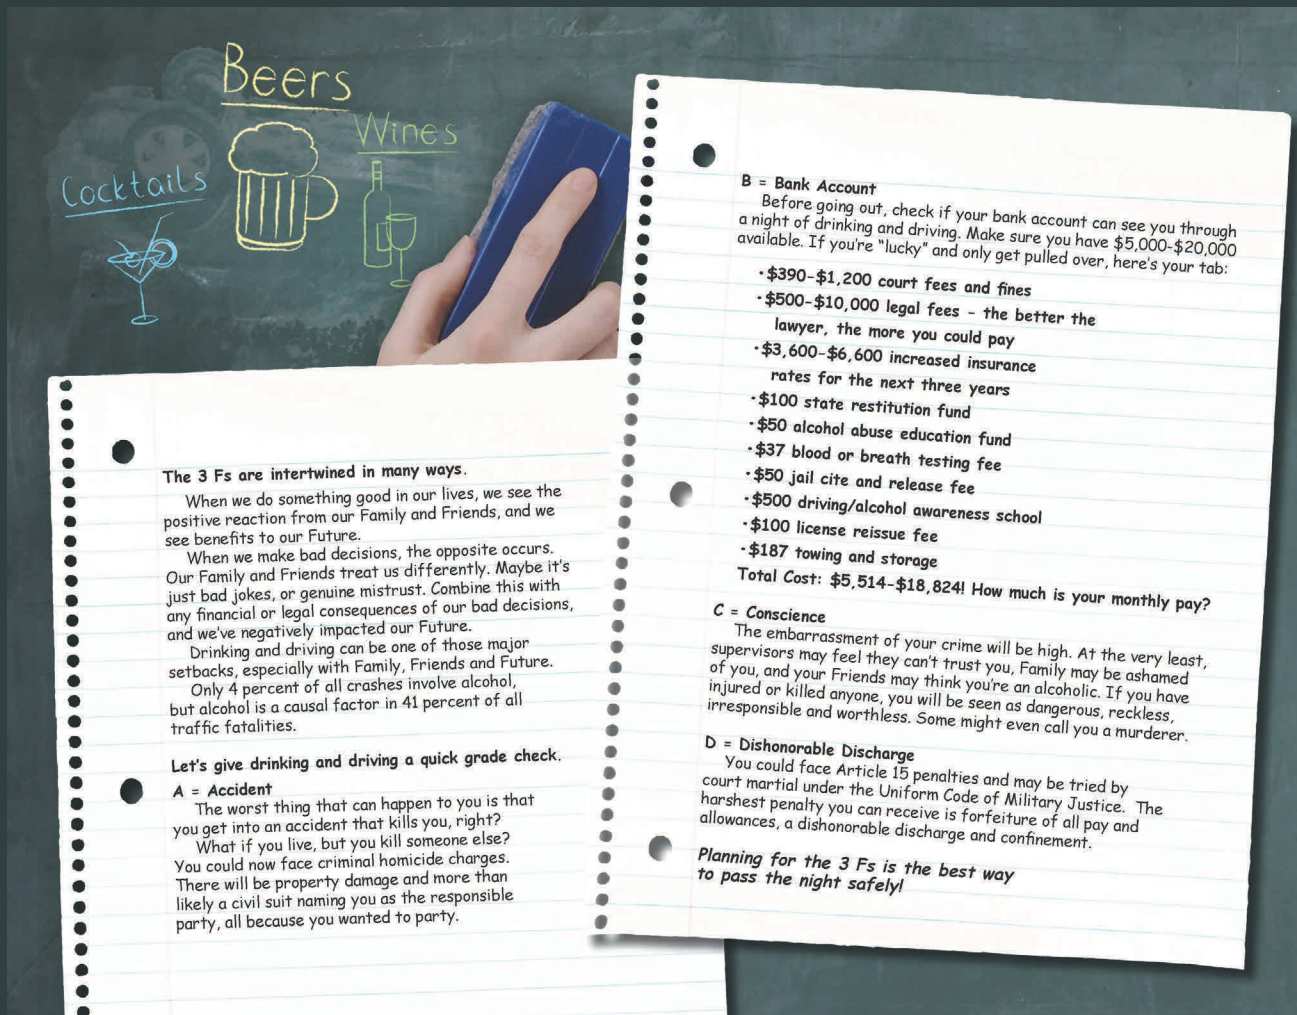 Beers
Wines
Cocktails
The 3 Fs are intertwined in many ways.
When we do something good in our lives, we see the
positive reaction from our Family and Friends, and we
see benefits to our Future.
When we make bad decisions, the opposite occurs.
Our Family and Friends treat us differently. Maybe it's
just bad jokes, or genuine mistrust. Combine this with
any financial or legal consequences of our bad decisions,
and we've negatively impacted our Future.
Drinking and driving can be one of those major
setbacks, especially with Family, Friends and Future.
Only 4 percent of all crashes involve alcohol,
but alcohol is a causal factor in 41 percent of all
traffic fatalities.
Let's give drinking and driving a quick grade check.
A = Accident
The worst thing that can happen to you is that
you get into an accident that kills you, right?
What if you live, but you kill someone else?
You could now face criminal homicide charges.
There will be property damage and more than
likely a civil suit naming you as the responsible
party, all because you wanted to party.
B = Bank Account
Before going out, check if your bank account can see you through
a night of drinking and driving. Make sure you have $5,000-$20,000
available. If you're "lucky" and only get pulled over, here's your tab:
·$390-$1,200 court fees and fines
·$500-$10,000 legal fees - the better the
lawyer, the more you could pay
·$3,600-$6,600 increased insurance
rates for the next three years
·$100 state restitution fund
·$50 alcohol abuse education fund
·$37 blood or breath testing fee
·$50 jail cite and release fee
·$500 driving/alcohol awareness school
·$100 license reissue fee
·$187 towing and storage
Total Cost: $5,514-$18,824! How much is your monthly pay?
C = Conscience
The embarrassment of your crime will be high. At the very least,
supervisors may feel they can't trust you, Family may be ashamed
of you, and your Friends may think you're an alcoholic. If you have
injured or killed anyone, you will be seen as dangerous, reckless,
irresponsible and worthless. Some might even call you a murderer.
D = Dishonorable Discharge
You could face Article 15 penalties and may be tried by
court martial under the Uniform Code of Military Justice. The
harshest penalty you can receive is forfeiture of all pay and
allowances, a dishonorable discharge and confinement.
Planning for the 3 Fs is the best way
to pass the night safely!